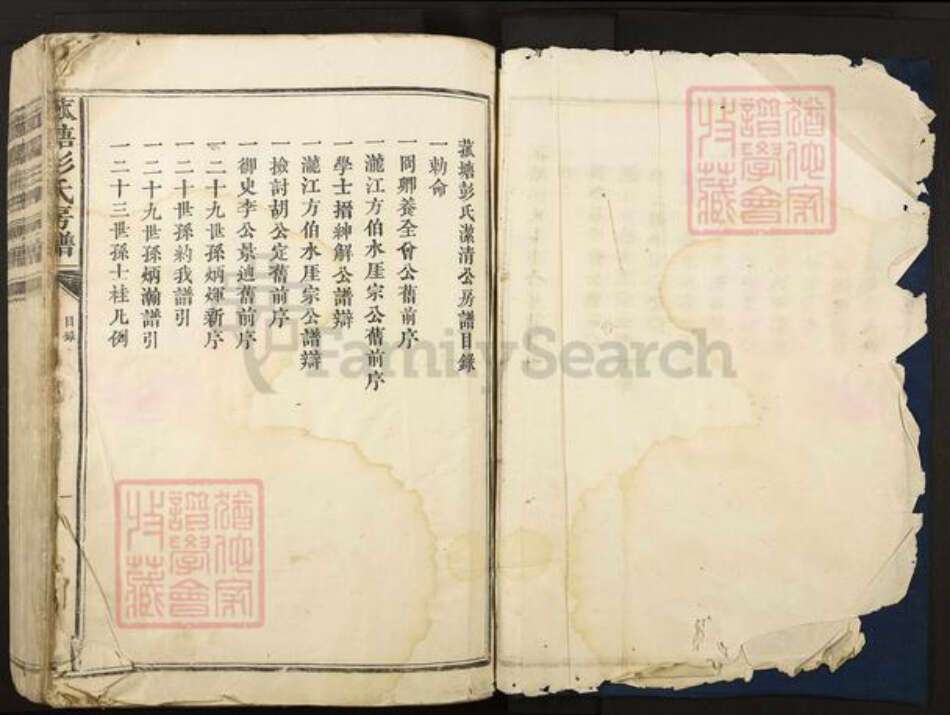 菰塘彭氏潔清公房譜目錄
一勅命
一冏卿養全曾公舊前序
一瀧江方伯水厓宗公舊前序
一學士搢紳解公譜辯
一瀧江方伯水厓宗公譜辯
一檢討胡公定舊前序
一御史李公景迪舊前序
一二十九世孫炳煇新序
一二十世孫約我譜引
一二十九世孫炳瀚譜引
一二十三世孫士桂凡例
菰塘彭氏房譜
目錄
一
FamilySearch